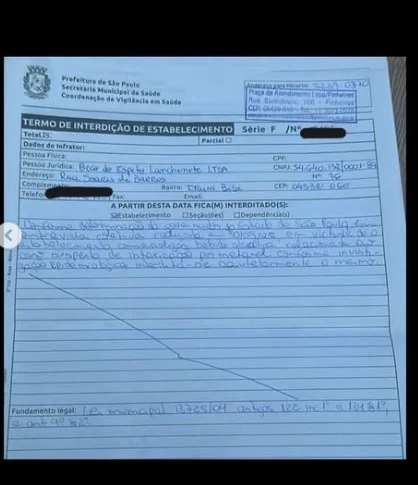 Prefeitura de São Paulo
Secretaria Municipal da Saúde
Coordenação de Vigilância em Saúde
Endereço para Recurso:
Praça de Atendimento Lapa/Pinheiros
Pinheiros
TERMO DE INTERDIÇÃO DE ESTABELECIMENTO Série F /Nº
Total Parcial
Dados do Infrator:
Pessoa Física: CPF:
Pessoa Jurídica: Beco do Espeto Lanchonete LTDA CNPJ:
Endereço: Rua Soares de Barros Nº 36
Bairro: Itaim Bibi CEP: 04538-060
Fax: Email:
A PARTIR DESTA DATA FICA(M) INTERDITADO(S):
Estabelecimento Seção(ões) Dependência(s)
Conforme determinação do governador do Estado de São Paulo em
entrevista coletiva realizada em 30/09/25 em virtude do
estabelecimento bebida alcoólica relacionada ao
caso suspeito de intoxicação por metanol conforme
epidemiológica cautelarmente o mesmo
Fundamento legal: Lei municipal 13725/04 artigos